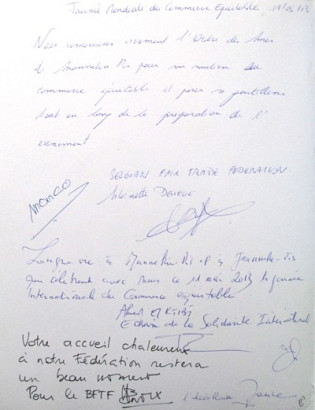 Journée Mondiale du Commerce Equitable, 11/05/13
Nous remercions vivement l'Ordre des Amis
de Manneken Pis pour son soutien du
commerce équitable et pour sa gentillesse
tout au long de la préparation de l'
évènement
BELGIAN FAIR TRADE FEDERATION
Longue vie à Manneken-Pis et à Jeanneke-Pis
qui célèbrent avec nous ce 11 mai 2013 la journée
Internationale du Commerce equitable
de la Solidarité International
Votre accueil chaleureux
à notre Fédération restera
un beau moment
Pour la BFTF